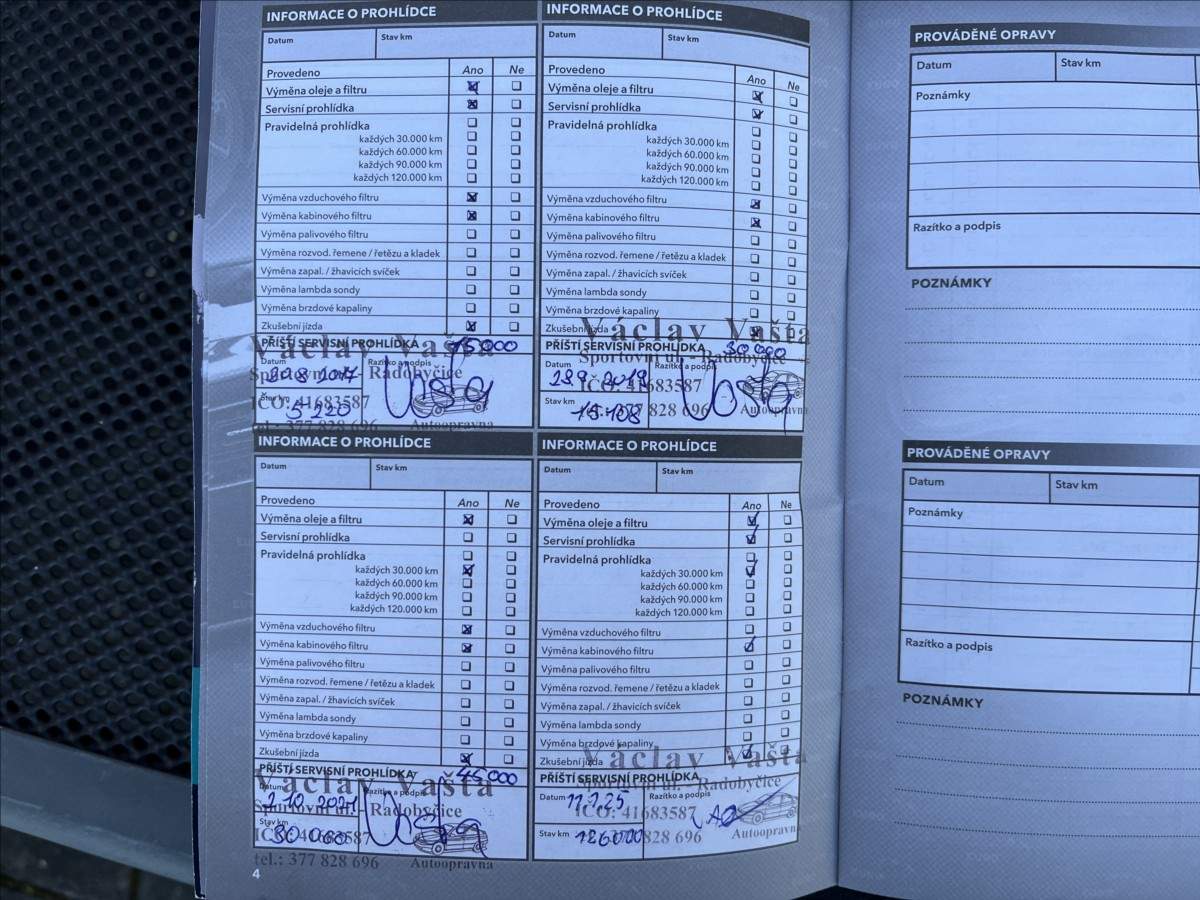 INFORMACE O PROHLÍDCE
Datum
Stav km
Provedeno
Ano
Ne
Výměna oleje a filtru
Servisní prohlídka
Pravidelná prohlídka
každých 30.000 km
každých 60.000 km
každých 90.000 km
každých 120.000 km
Výměna vzduchového filtru
Výměna kabinového filtru
Výměna palivového filtru
Výměna rozvod. řemene / řetězu a kladek
Výměna zapal. / žhavicích svíček
Výměna lambda sondy
Výměna brzdové kapaliny
Zkušební jízda
PŘÍŠTÍ SERVISNÍ PROHLÍDKA 15000
Václav Vašta
Datum
Razítko a podpis
Sportovní ul. - Radobyčice
IČO: 41683587
Stav km
5220
tel.: 377 828 696
Autoopravna
INFORMACE O PROHLÍDCE
Datum
Stav km
Provedeno
Ano
Ne
Výměna oleje a filtru
Servisní prohlídka
Pravidelná prohlídka
každých 30.000 km
každých 60.000 km
každých 90.000 km
každých 120.000 km
Výměna vzduchového filtru
Výměna kabinového filtru
Výměna palivového filtru
Výměna rozvod. řemene / řetězu a kladek
Výměna zapal. / žhavicích svíček
Výměna lambda sondy
Výměna brzdové kapaliny
Zkušební jízda
Václav Vašta
PŘÍŠTÍ SERVISNÍ PROHLÍDKA 30000
Sportovní ul. - Radobyčice
Datum
Razítko a podpis
IČO: 41683587
Stav km
15108
828 696
Autoopravna
INFORMACE O PROHLÍDCE
Datum
Stav km
Provedeno
Ano
Ne
Výměna oleje a filtru
Servisní prohlídka
Pravidelná prohlídka
každých 30.000 km
každých 60.000 km
každých 90.000 km
každých 120.000 km
Výměna vzduchového filtru
Výměna kabinového filtru
Výměna palivového filtru
Výměna rozvod. řemene / řetězu a kladek
Výměna zapal. / žhavicích svíček
Výměna lambda sondy
Výměna brzdové kapaliny
Zkušební jízda
PŘÍŠTÍ SERVISNÍ PROHLÍDKA 45000
Václav Vašta
Datum
Razítko a podpis
Sportovní ul. - Radobyčice
Stav km
tel.: 377 828 696
Autoopravna
INFORMACE O PROHLÍDCE
Datum
Stav km
Provedeno
Ano
Ne
Výměna oleje a filtru
Servisní prohlídka
Pravidelná prohlídka
každých 30.000 km
každých 60.000 km
každých 90.000 km
každých 120.000 km
Výměna vzduchového filtru
Výměna kabinového filtru
Výměna palivového filtru
Výměna rozvod. řemene / řetězu a kladek
Výměna zapal. / žhavicích svíček
Výměna lambda sondy
Výměna brzdové kapaliny
Zkušební jízda
Václav Vašta
PŘÍŠTÍ SERVISNÍ PROHLÍDKA
Sportovní ul. - Radobyčice
Datum
Razítko a podpis
IČO: 41683587
Stav km
126000
828 696
Autoopravna
4
PROVÁDĚNÉ OPRAVY
Datum
Stav km
Poznámky
Razítko a podpis
POZNÁMKY
PROVÁDĚNÉ OPRAVY
Datum
Stav km
Poznámky
Razítko a podpis
POZNÁMKY